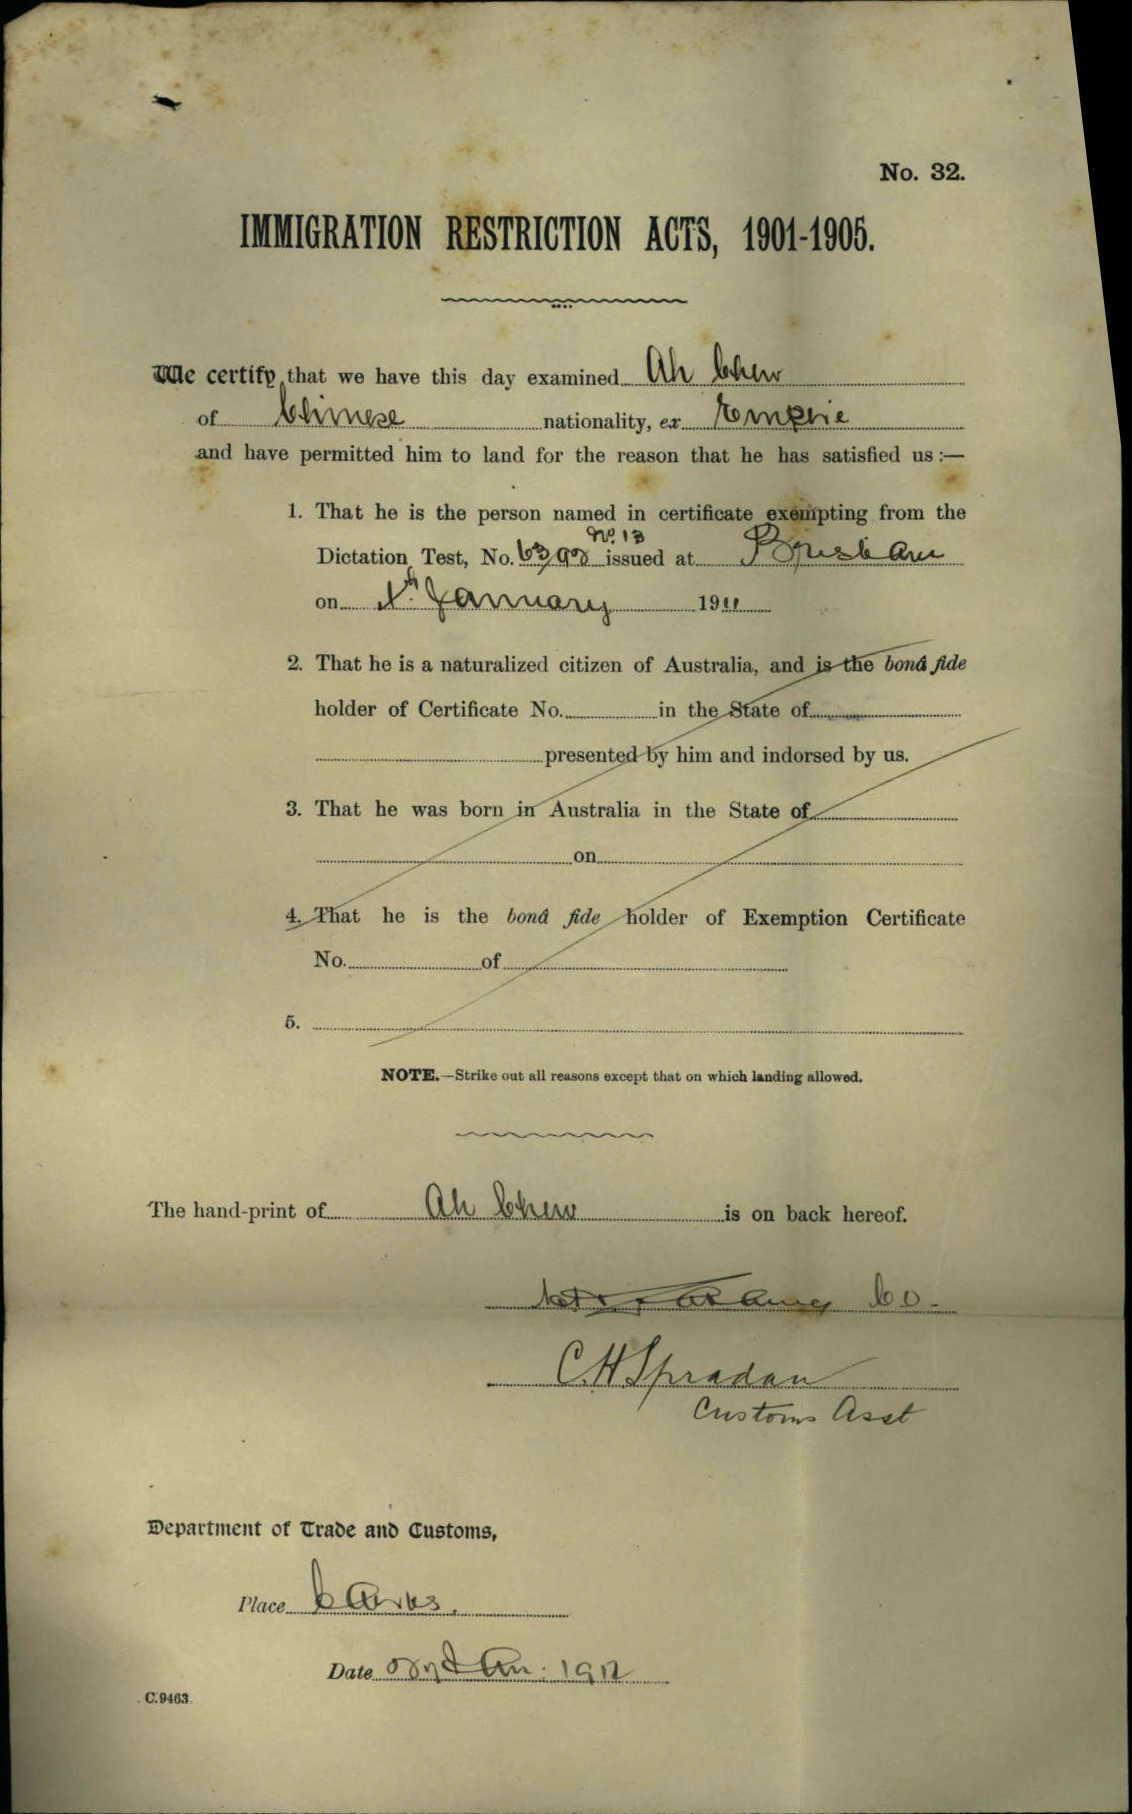 No. 32.
IMMIGRATION RESTRICTION ACTS, 1901-1905.
We certify that we have this day examined Ah Chew
of Chinese nationality, ex Empire
and have permitted him to land for the reason that he has satisfied us :—
1. That he is the person named in certificate exempting from the
No. 13
Dictation Test, No. 63/92 issued at Brisbane
on January 1911
2. That he is a naturalized citizen of Australia, and is the bonâ fide
holder of Certificate No. in the State of
presented by him and indorsed by us.
3. That he was born in Australia in the State of
on
4. That he is the bonâ fide holder of Exemption Certificate
No. of
5.
NOTE.—Strike out all reasons except that on which landing allowed.
The hand-print of Ah Chew is on back hereof.
C.H. Spradan
Customs Asst
Department of Trade and Customs,
Place Cairns.
Date Jan. 1912
C.9463.